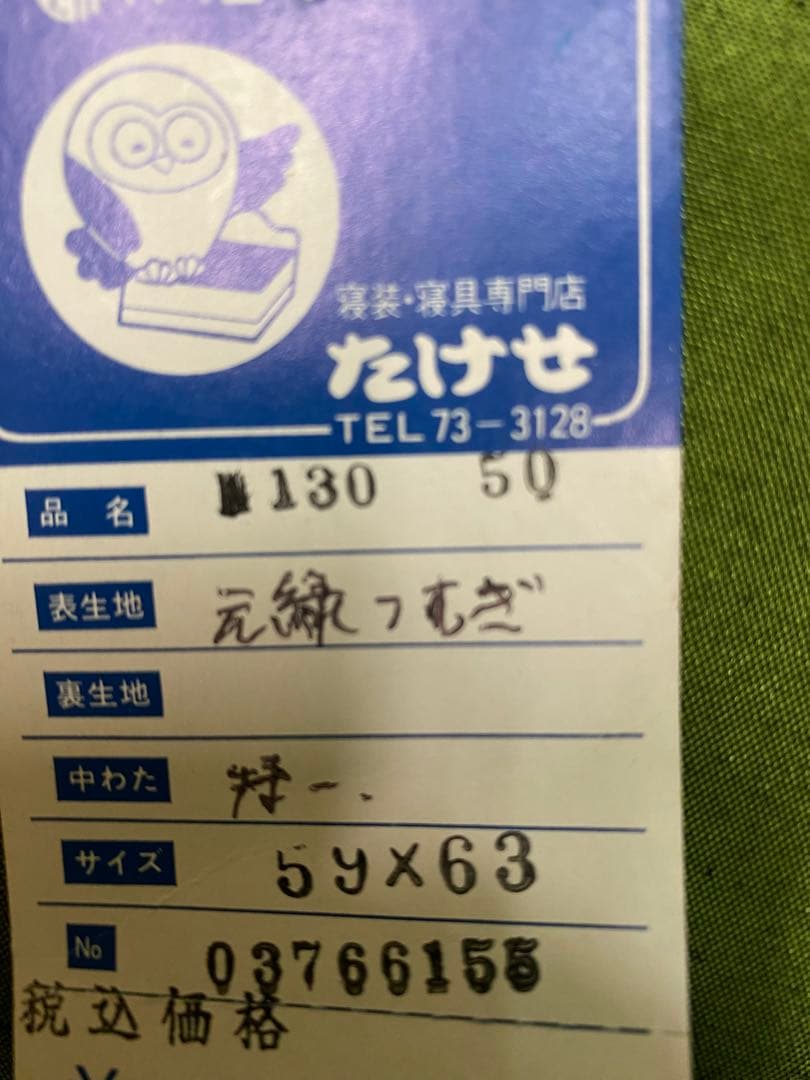 寝装・寝具専門店
たけせ
TEL 73-3128
品名 130 50
表生地 元緑つむぎ
裏生地
中わた 特一.
サイズ 59×63
No 03766155
税込価格
¥